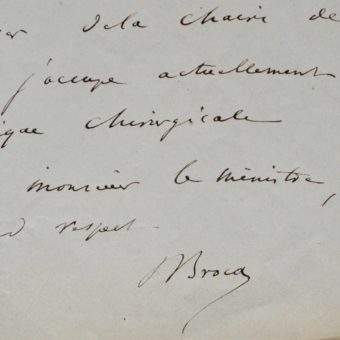 de la chaire de
j'occupe actuellement
ique chirurgicale
monsieur le ministre,
d respect.
P Broca